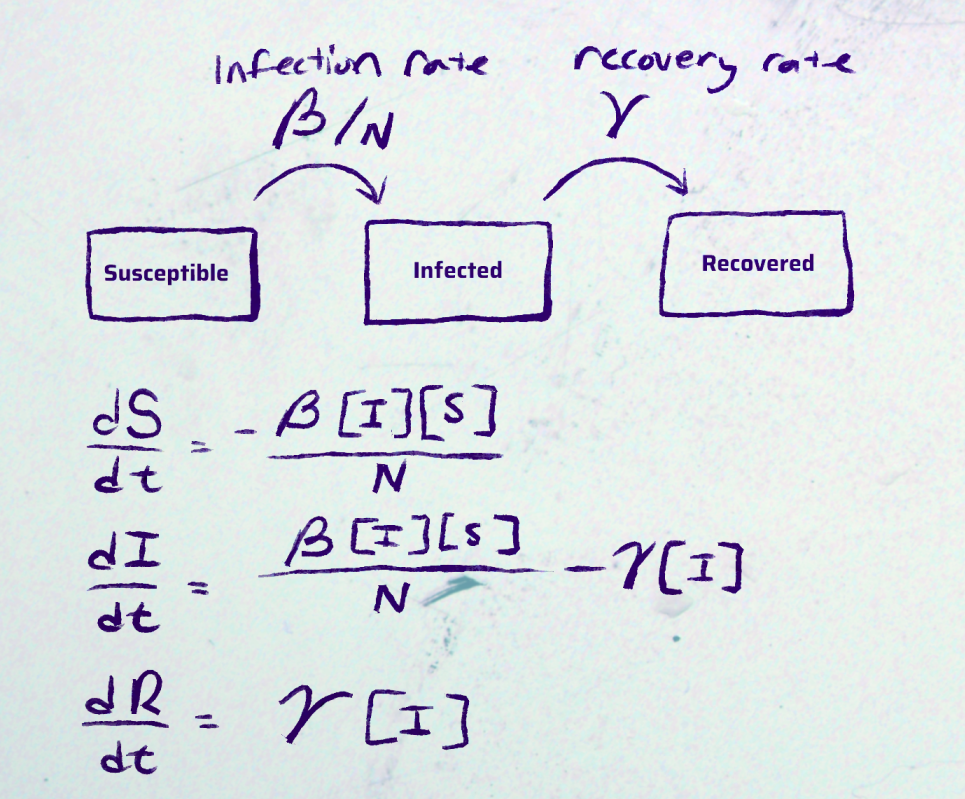 Infection rate recovery rate
β/N γ
Susceptible Infected Recovered
dS/dt = - β[I][S]/N
dI/dt = β[I][S]/N - γ[I]
dR/dt = γ[I]